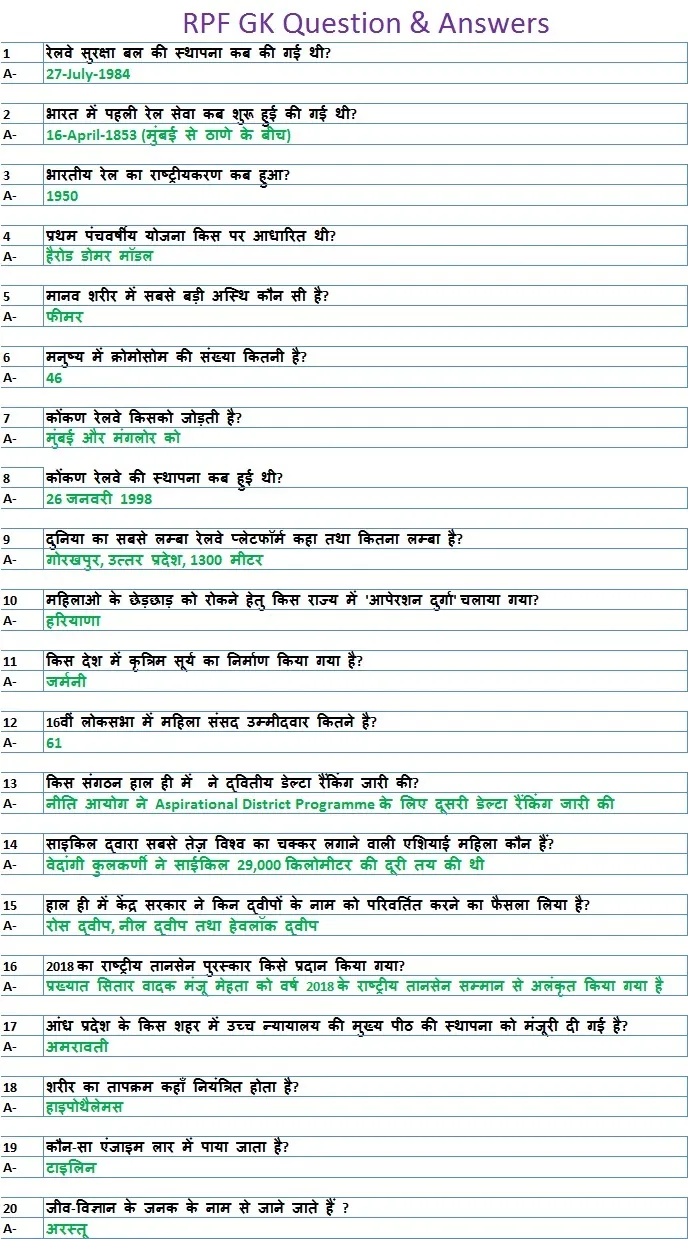 RPF GK Question & Answers
1 रेलवे सुरक्षा बल की स्थापना कब की गई थी?
A- 27-July-1984
2 भारत में पहली रेल सेवा कब शुरू हुई की गई थी?
A- 16-April-1853 (मुंबई से ठाणे के बीच)
3 भारतीय रेल का राष्ट्रीयकरण कब हुआ?
A- 1950
4 प्रथम पंचवर्षीय योजना किस पर आधारित थी?
A- हैरोड डोमर मॉडल
5 मानव शरीर में सबसे बड़ी अस्थि कौन सी है?
A- फीमर
6 मनुष्य में क्रोमोसोम की संख्या कितनी है?
A- 46
7 कोंकण रेलवे किसको जोड़ती है?
A- मुंबई और मंगलोर को
8 कोंकण रेलवे की स्थापना कब हुई थी?
A- 26 जनवरी 1998
9 दुनिया का सबसे लम्बा रेलवे प्लेटफॉर्म कहा तथा कितना लम्बा है?
A- गोरखपुर, उत्तर प्रदेश, 1300 मीटर
10 महिलाओ के छेड़छाड़ को रोकने हेतु किस राज्य में 'आपेरशन दुर्गा' चलाया गया?
A- हरियाणा
11 किस देश में कृत्रिम सूर्य का निर्माण किया गया है?
A- जर्मनी
12 16वीं लोकसभा में महिला संसद उम्मीदवार कितने है?
A- 61
13 किस संगठन हाल ही में ने द्वितीय डेल्टा रैंकिंग जारी की?
A- नीति आयोग ने Aspirational District Programme के लिए दूसरी डेल्टा रैंकिंग जारी की
14 साइकिल द्वारा सबसे तेज़ विश्व का चक्कर लगाने वाली एशियाई महिला कौन हैं?
A- वेदांगी कुलकर्णी ने साईकिल 29,000 किलोमीटर की दूरी तय की थी
15 हाल ही में केंद्र सरकार ने किन द्वीपों के नाम को परिवर्तित करने का फैसला लिया है?
A- रोस द्वीप, नील द्वीप तथा हेवलॉक द्वीप
16 2018 का राष्ट्रीय तानसेन पुरस्कार किसे प्रदान किया गया?
A- प्रख्यात सितार वादक मंजू मेहता को वर्ष 2018 के राष्ट्रीय तानसेन सम्मान से अलंकृत किया गया है
17 आंध प्रदेश के किस शहर में उच्च न्यायालय की मुख्य पीठ की स्थापना को मंजूरी दी गई है?
A- अमरावती
18 शरीर का तापक्रम कहाँ नियंत्रित होता है?
A- हाइपोथैलेमस
19 कौन-सा एंजाइम लार में पाया जाता है?
A- टाइलिन
20 जीव-विज्ञान के जनक के नाम से जाने जाते हैं ?
A- अरस्तू